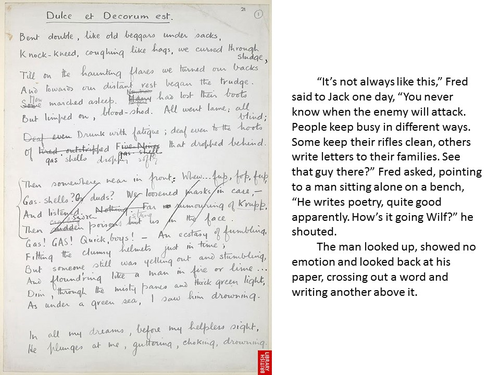 Dulce et Decorum est.
Bent double, like old beggars under sacks,
Knock-kneed, coughing like hags, we cursed through
sludge,
Till on the haunting flares we turned our backs
And towards our distant rest began the trudge.
marched asleep. Many had lost their boots
But limped on, blood-shod. All went lame; all
blind;
Deaf even Drunk with fatigue; deaf even to the hoots
Of tired outstripped Five-Nines that dropped behind.
gas shells dropping softly
Then somewhere near in front: Whew... fup, fop, fup
Gas-shells? Or duds? We loosened masks in case, –
And listened. Nothing. Far humouring of Krupp.
Then sudden poisons hit us in the face.
Gas! GAS! Quick, boys! – An ecstasy of fumbling,
Fitting the clumsy helmets just in time;
But someone still was yelling out and stumbling,
And floundering like a man in fire or lime...
Dim, through the misty panes and thick green light,
As under a green sea, I saw him drowning.
In all my dreams, before my helpless sight,
He plunges at me, guttering, choking, drowning.
BRITISH
LIBRARY
“It’s not always like this,” Fred
said to Jack one day, “You never
know when the enemy will attack.
People keep busy in different ways.
Some keep their rifles clean, others
write letters to their families. See
that guy there?” Fred asked, pointing
to a man sitting alone on a bench,
“He writes poetry, quite good
apparently. How’s it going Wilf?” he
shouted.
The man looked up, showed no
emotion and looked back at his
paper, crossing out a word and
writing another above it.